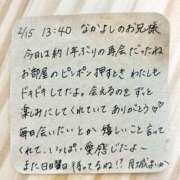 2/15 13:40 なかよしのお兄様
今日は約1年ぶりの再会だったね
お部屋のピンポン押すとき わたしも
ドキドキしてたよ。会えるのをずっと
楽しみにしてくれていて ありがとう♡
毎日会いたいとか 嬉しいこと言って
くれて、いっぱい愛感じたよ〜
また日曜日 待ってるね!! 月城まいか